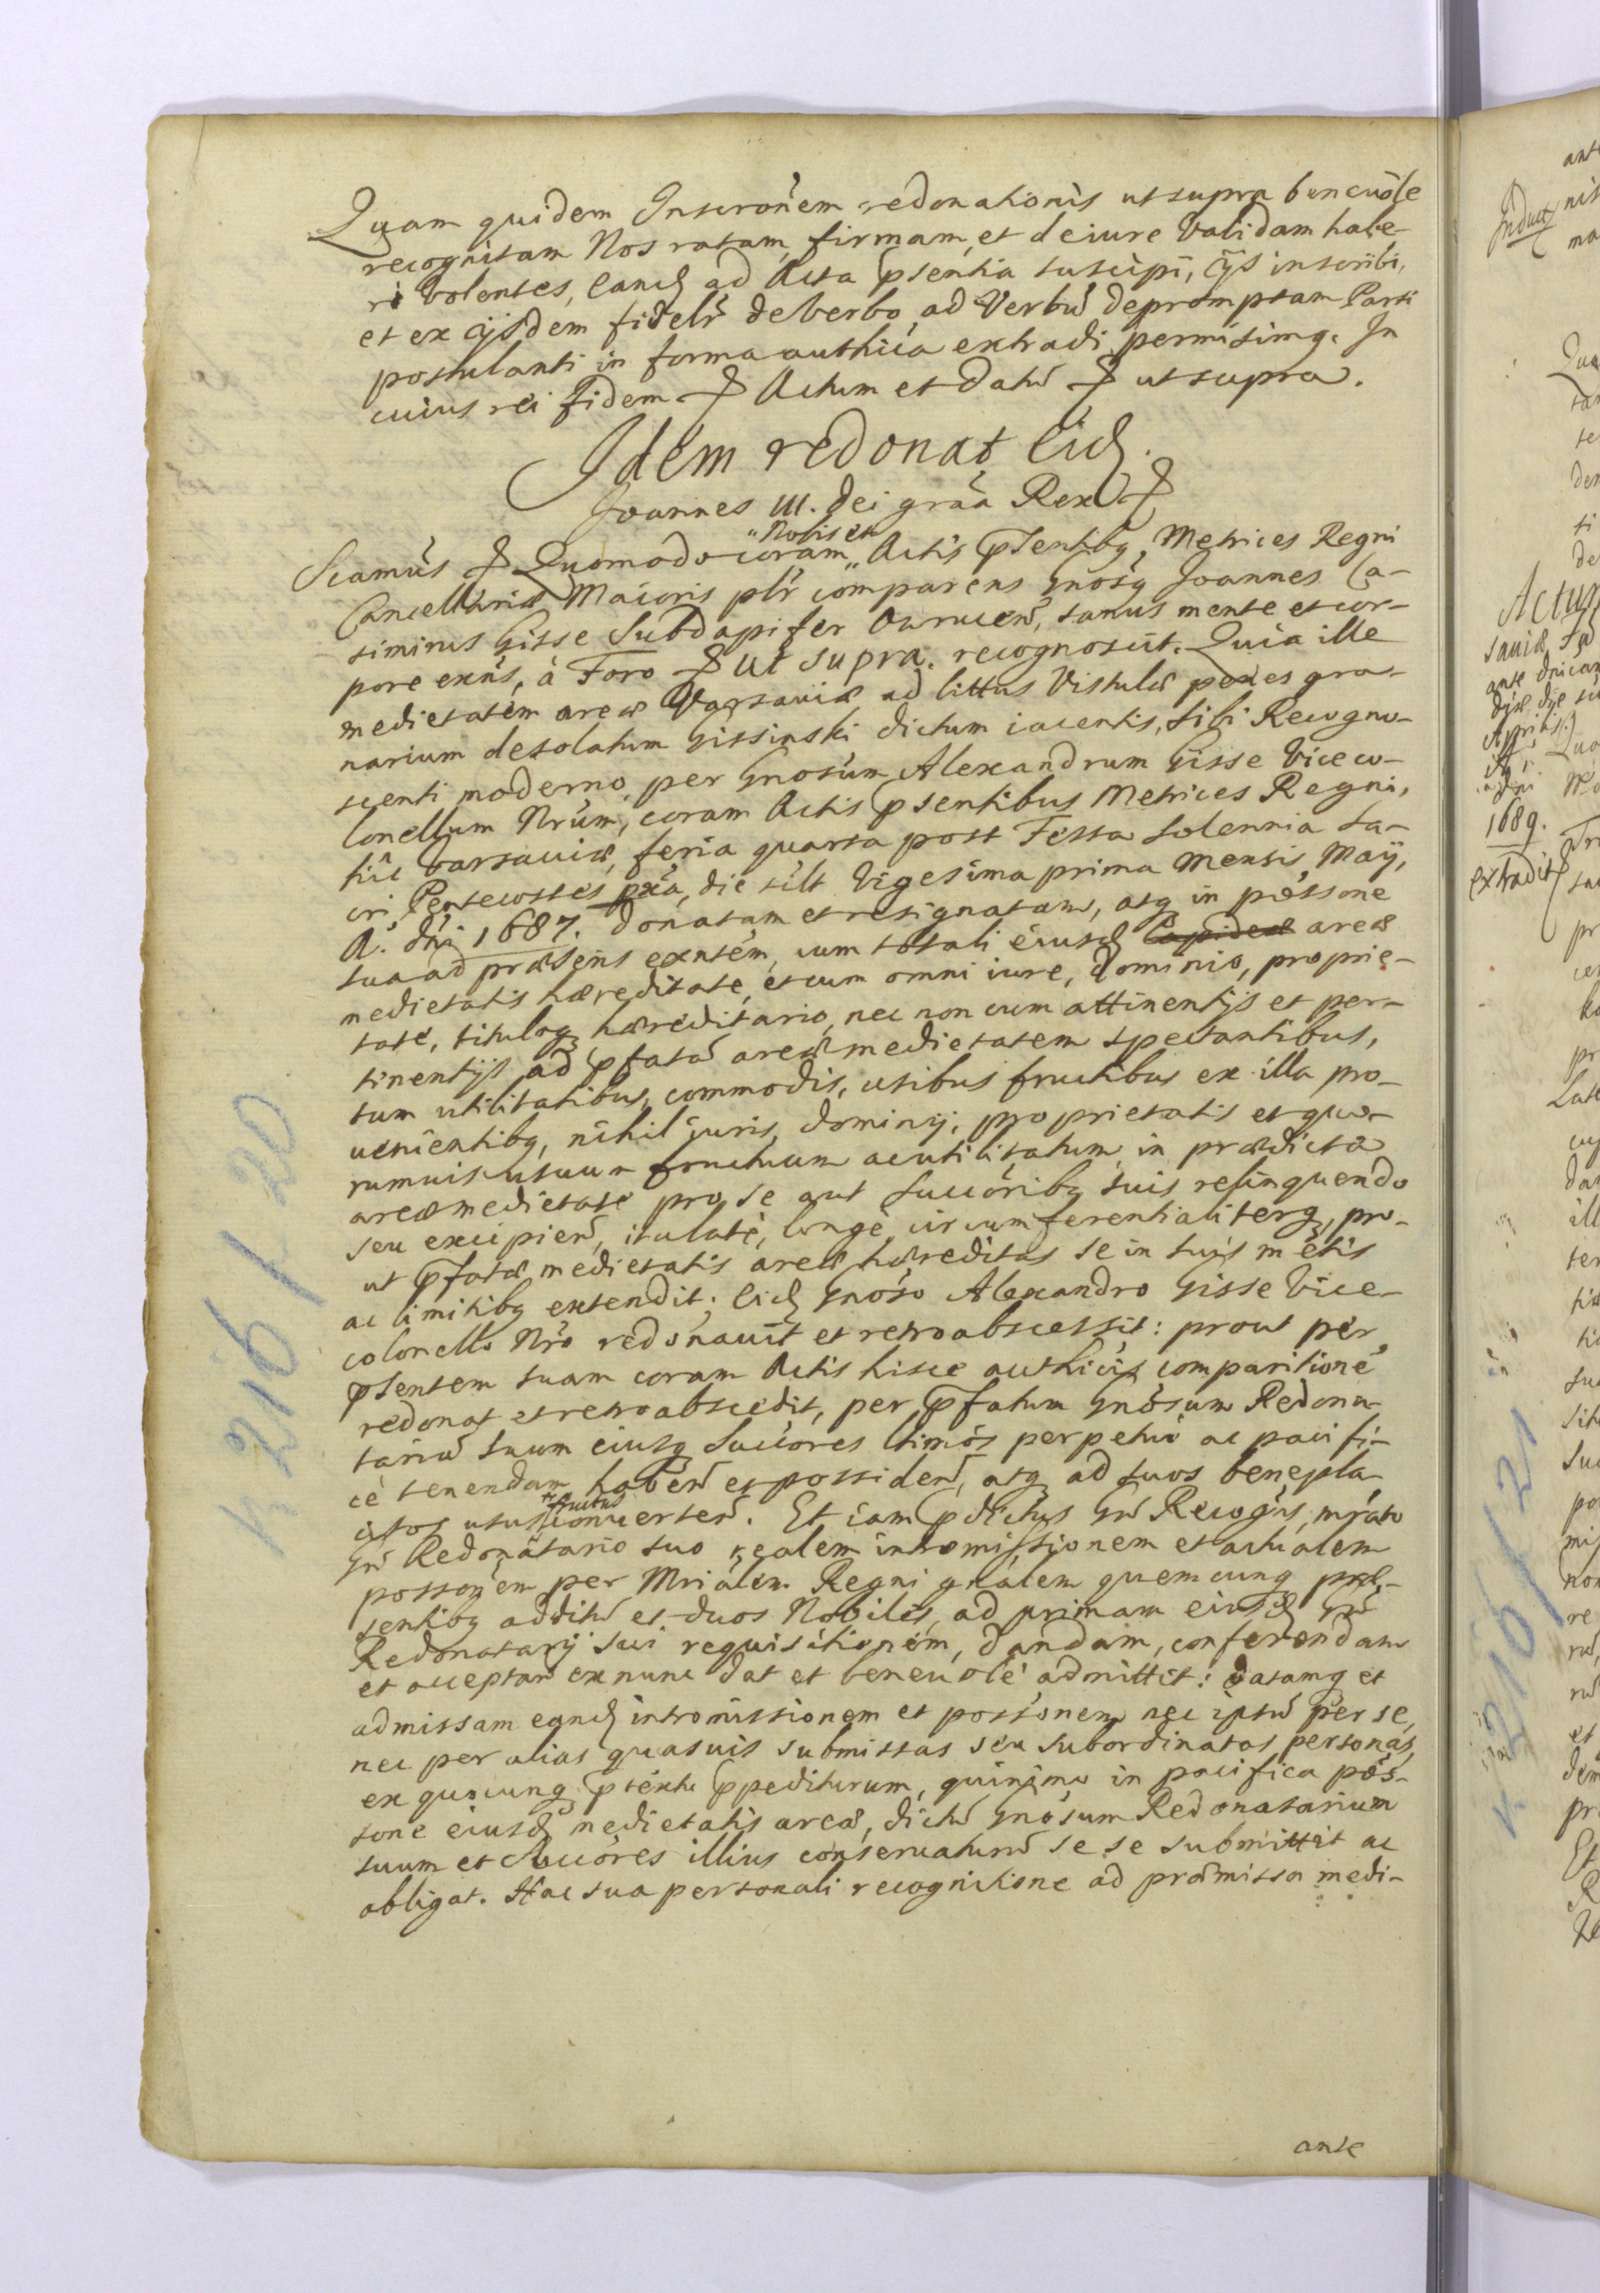 Quam quidem Inscronem redonationis ut supra beneuole
recognitam Nos ratam, firmam, et de iure Validam habe-
ri Volentes, eand ad Acta pñtia suscipi, ijs inscribi,
et ex ijsdem fidelr de Verbo ad Verbũ depromptam Parti
postulanti in forma authica extradi permisimq. In
cuius rei fidem Actum et datũ ut supra.
Idem redonat eid.
Joannes III. Dei grãa Rex
Nobis et
Scamus Quomodo coram Actis psentibq Metrices Regni
Cancellariæ Maioris plr comparens Gnosq Joannes Ca-
siminus Gisse Subdapifer Owrucen, sanus mente et cor-
pore exñs, à Foro ut supra. recognouit. Quia ille
medietatem areæ Varsauiæ ad littus Vistulæ penes gra-
narium desolatum Gissinski dictum iacentis, sibi Recogno-
scenti moderno, per Gnosum Alexandrum Gisse Viceco-
lonellum Nrum, coram Actis psentibus Metrices Regni,
hic Varsauiæ, feria quarta post Festa solennia Sa-
cri Pentecostes pxa, die scilt Vigesima prima Mensis Maij,
A. dni 1687. donatam et resignatam, atq in possone
sua ad præsens exntem, cum totali eiusd areæ
medietatis hæreditate, et cum omni iure, dominio, proprie-
tate, tituloq hæreditario, nec non cum attinentijs et per-
tinentijs ad pfatã areæ medietatem spectantibus,
tum utilitatibus, commodis, usibus fructibus ex illa pro-
uenientibq, nihil iuris, dominij, proprietatis et quo-
rumuis usuum fructuum ac utilitatum in prædicta
areæ medietate pro se aut Succoribq suis relinquendo
seu excipien, ita late, longe, circumferentialiterq, pro-
ut pfatæ medietatis areæ hæreditas se in suis metis
ac limitibq extendit; eid Gnoso Alexandro Gisse Vice-
colonello Nro redonauit et retroabscessit: prout per
psentem suam coram Actis hisce authicis comparitione
redonat et retroabscedit, per pfatum Gnosum Redona-
tariũ suum eiusq Succores ltimos perpetuo ac pacifi-
ce tenendam haben et possiden, atq ad suos benepla-
fructus
citos usus conuerten. Et iam pdictus Gñ Recogñs, mrato
Gñ Redonatario suo realem intromissionem et actualem
possonem per Mrialem Regni gnalem quemcunq præ-
sentibq additũ et duos Nobiles, ad primam eiusd Gñ
Redonatarij sui requisitionem, dandam, conferendam
et acceptan ex nunc dat et beneuole admittit: datamq et
admissam eand intromissionem et possonem nec ipsũ per se,
nec per alias quasuis submissas seu subordinatas personas,
ex quocunq ptextu ppediturum, quinimo in pacifica pos-
sone eiusd medietatis areæ, dictũ Gnosum Redonatarium
suum et Succores illius conseruaturũ se se submittit ac
obligat. Hac sua personali recognitione ad præmissa medi-
ante
K 216 / 20
Induct
Actus
1689.
extradit
K 216 / 21